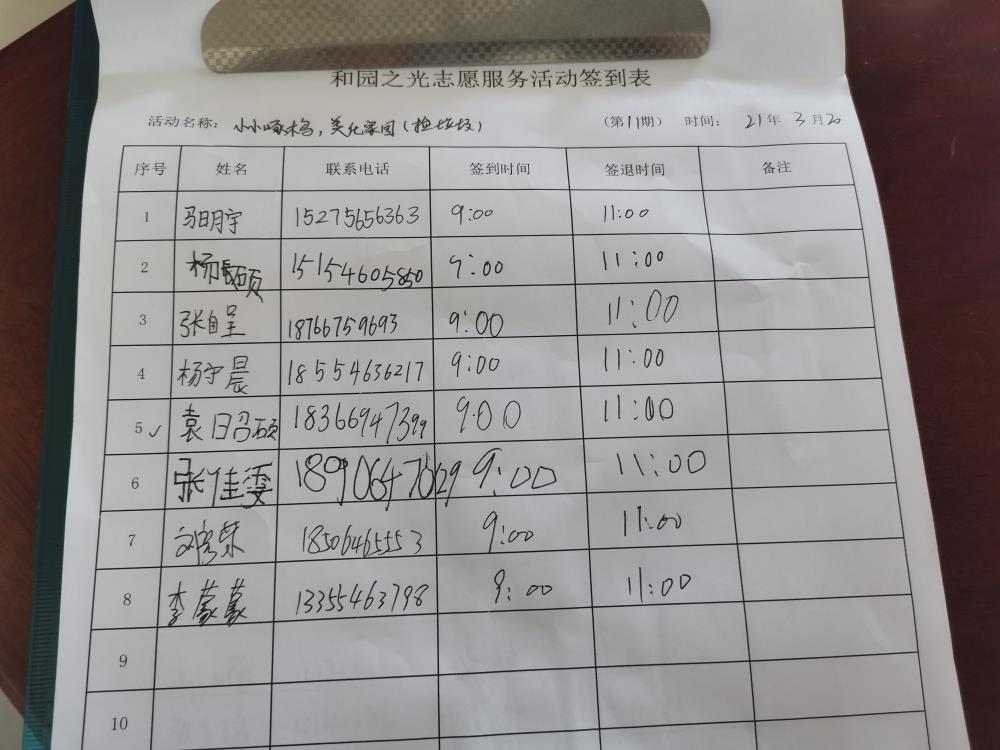 和园之光志愿服务活动签到表
活动名称: 小小啄木鸟,美化家园(捡垃圾) (第11期) 时间: 21年3月20
序号 姓名 联系电话 签到时间 签退时间 备注
1 马明宇 15275656363 9:00 11:00
2 杨颐硕 15154605850 9:00 11:00
3 张自呈 18766759693 9:00 11:00
4 杨宇晨 18554636217 9:00 11:00
5✓ 袁日召硕 18366947399 9:00 11:00
6 张佳雯 18906470629 9:00 11:00
7 18506465553 9:00 11:00
8 李蒙蒙 13355463798 9:00 11:00
9
10